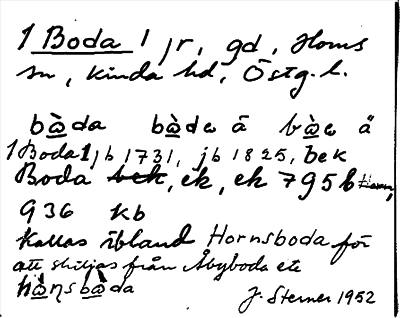 1 Boda 1 jr, gd, Horns
sn, Kinda hd, Östg. l.
bàda bàde å bàe ä
1 Boda 1, jb 1731, jb 1825, bek
Boda bek, ek, ek 795 b
936 kb
Kallas ibland Hornsboda för
att skiljas från Åbyboda etc
hà̱ṇsbà̱da
J. Sterner 1952